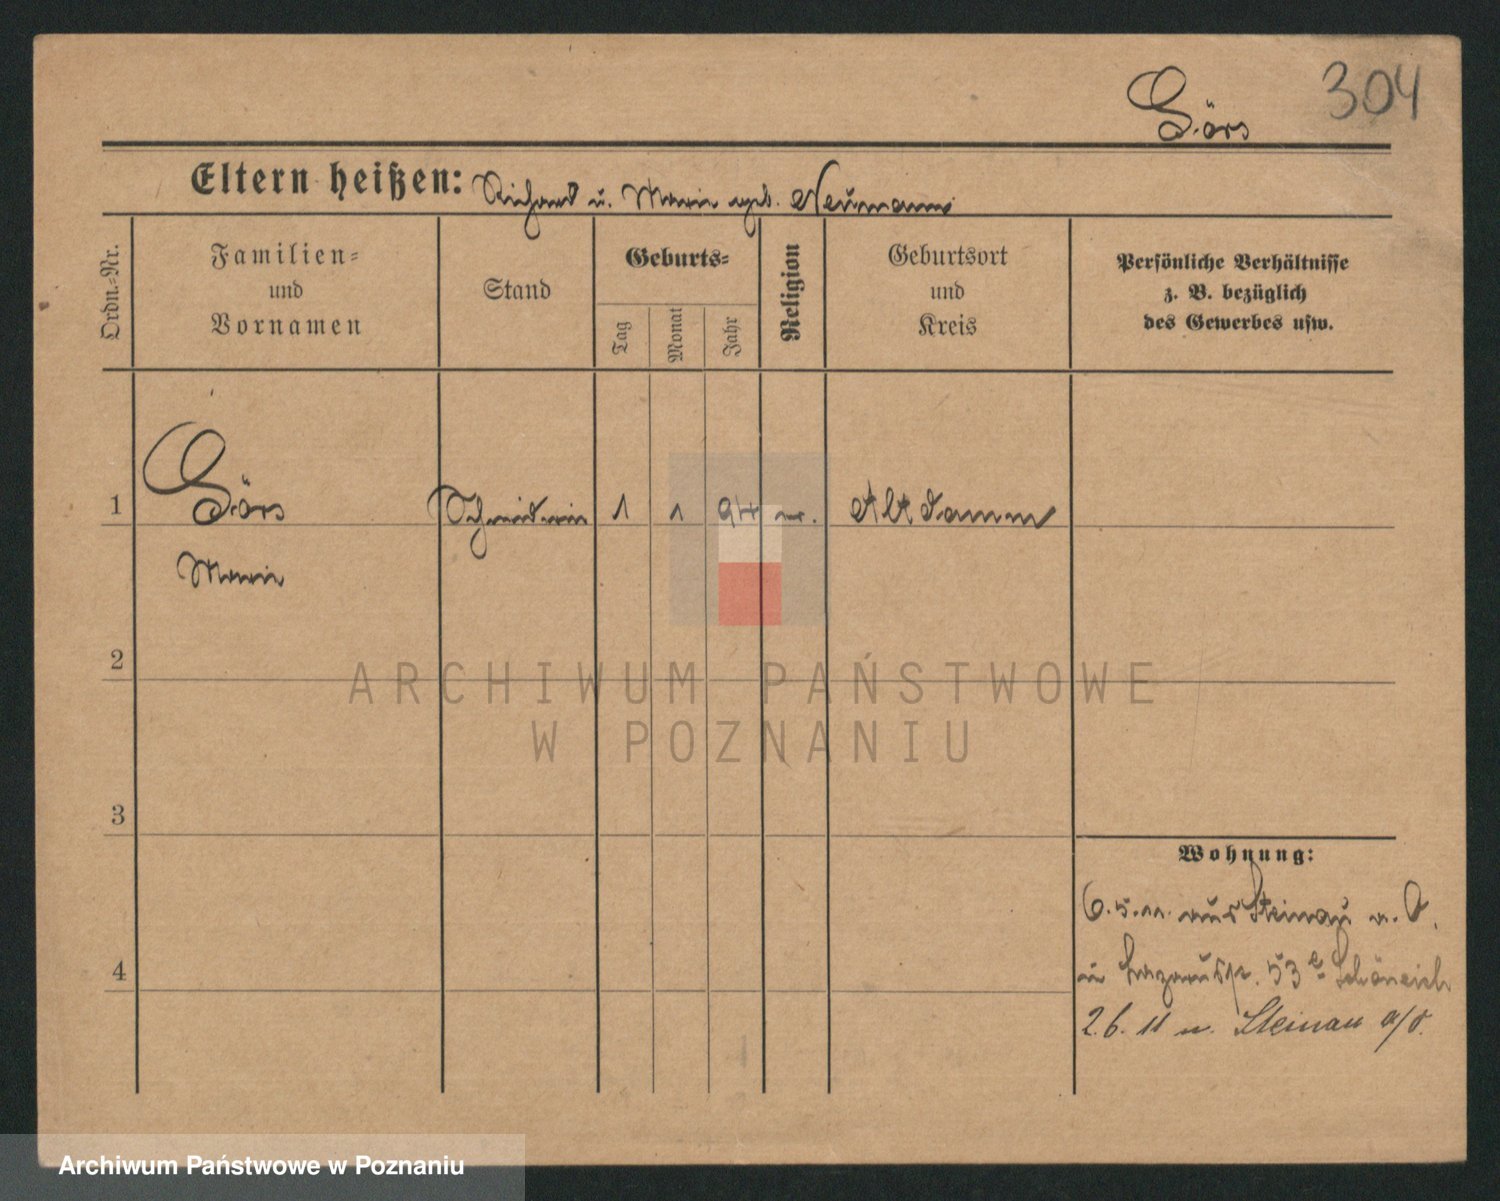 304
Görs
Eltern heißen: Richard u. Marie geb. Neumann
Ordn.-Nr.
Familien-
und
Vornamen
Stand
Geburts-
Tag
Monat
Jahr
Religion
Geburtsort
und
Kreis
Persönliche Verhältnisse
z. B. bezüglich
des Gewerbes usw.
1
Görs
Schneiderin
1
1
94
ev.
Alt Damm
Marie
2
3
4
Wohnung:
6. 5. 11. aus Steinau a. O.
in 53 Schöneich
2. 6. 11 n. Steinau a/O.
ARCHIWUM PAŃSTWOWE
W POZNANIU
Archiwum Państwowe w Poznaniu